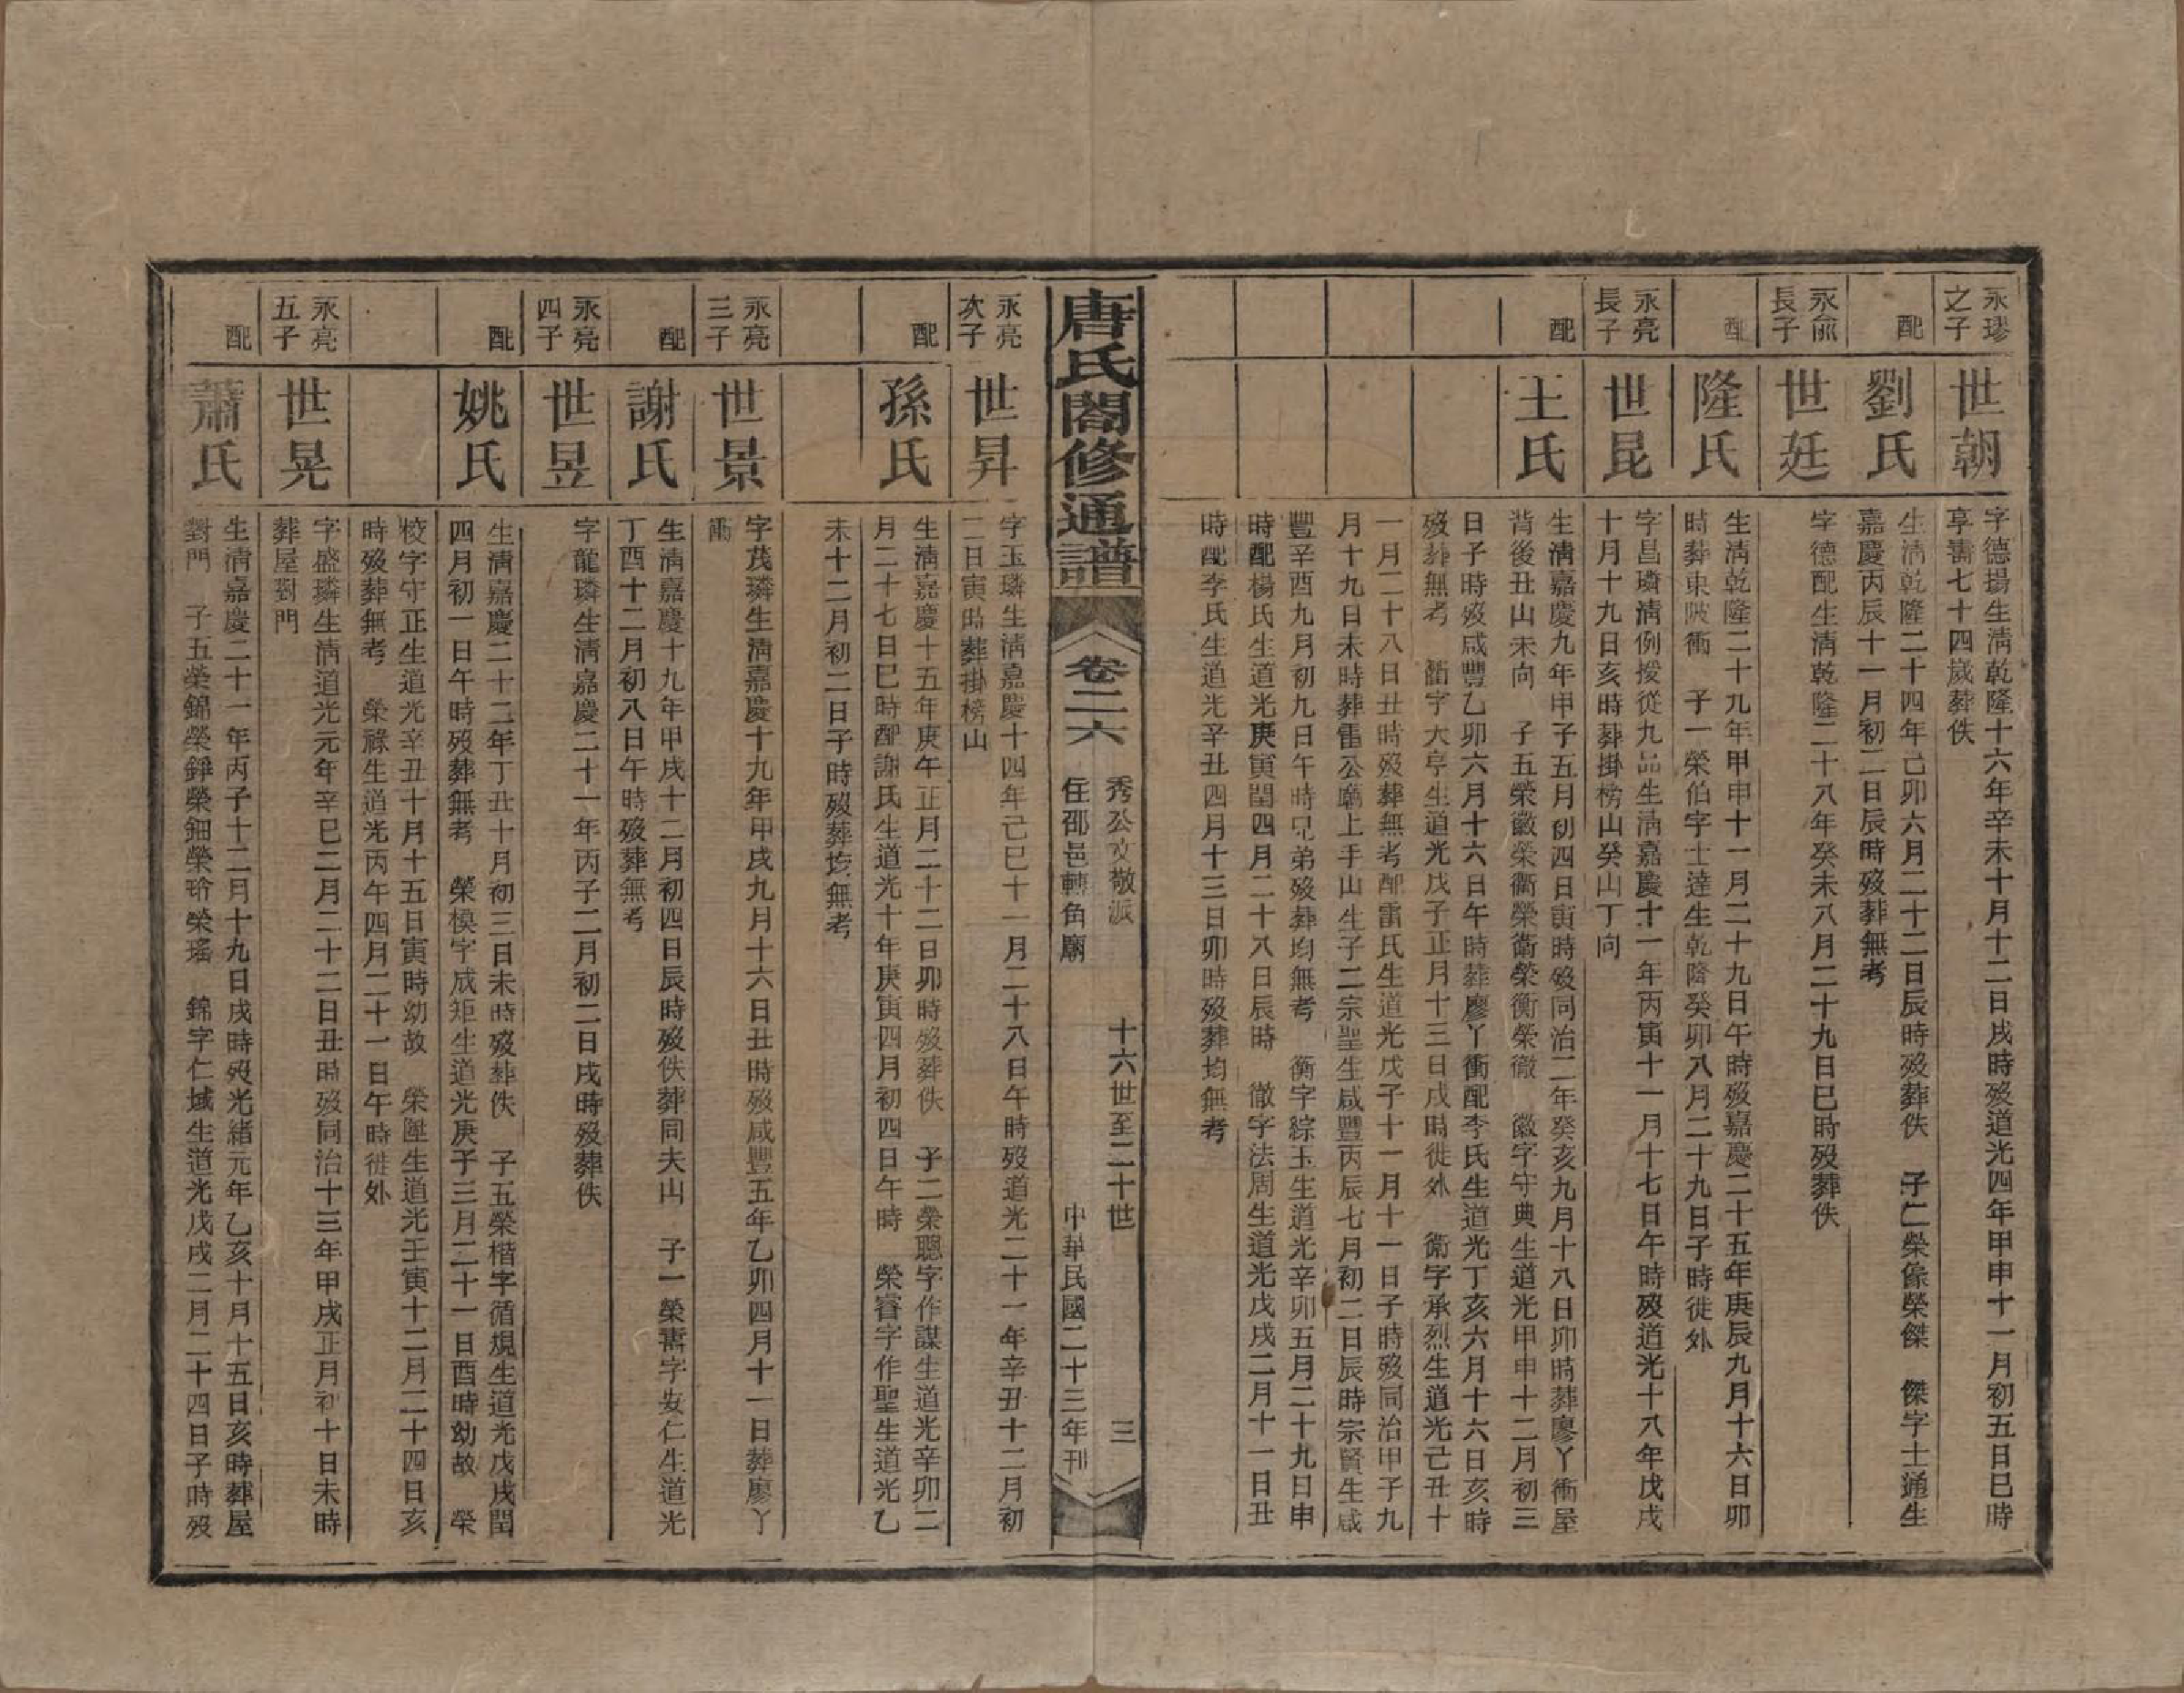 永璆之子
世朝
字德揚生淸乾隆十六年辛未十月十二日戌時歿道光四年甲申十一月初五日巳時
享壽七十四歲葬佚
配
劉氏
生淸乾隆二十四年己卯六月二十二日辰時歿葬佚　子仁榮傢榮傑　傑字士通生
嘉慶丙辰十一月初二日辰時歿葬無考
永俞長子
世廷
字德配生淸乾隆二十八年癸未八月二十九日巳時歿葬佚
配
隆氏
生淸乾隆二十九年甲申十一月二十九日午時歿嘉慶二十五年庚辰九月十六日卯
時葬東陂衝　子一榮伯字士達生乾隆癸卯八月二十九日子時徙外
永亮長子
世昆
字昌璘淸例授從九品生淸嘉慶十一年丙寅十一月十七日午時歿道光十八年戊戌
十月十九日亥時葬掛榜山癸山丁向
配
王氏
生淸嘉慶九年甲子五月初四日寅時歿同治二年癸亥九月十八日卯時葬廖丫衝屋
背後丑山未向　子五榮徽榮衢榮衛榮衡榮徹　徽字守典生道光甲申十二月初三
日子時歿咸豐乙卯六月十六日午時葬廖丫衝配李氏生道光丁亥六月十六日亥時
歿葬無考　衢字大亨生道光戊子正月十三日戌時徙外　衛字承烈生道光己丑十
一月二十八日丑時歿葬無考配雷氏生道光戊子十一月十一日子時歿同治甲子九
月十九日未時葬雷公嘴上手山生子二宗聖生咸豐丙辰七月初二日辰時宗賢生咸
豐辛酉九月初九日午時兄弟歿葬均無考　衡字綜玉生道光辛卯五月二十九日申
時配楊氏生道光庚寅閏四月二十八日辰時　徹字法周生道光戊戌二月十一日丑
時配李氏生道光辛丑四月十三日卯時歿葬均無考
唐氏閤修通譜
卷二六
秀公文敬派
住邵邑轉角廟
十六世至二十世
三
中華民國二十三年刊
永亮次子
世昇
字玉璘生淸嘉慶十四年己巳十一月二十八日午時歿道光二十一年辛丑十二月初
二日寅時葬掛榜山
配
孫氏
生淸嘉慶十五年庚午正月二十二日卯時歿葬佚　子二榮聰字作謀生道光辛卯二
月二十七日巳時配謝氏生道光十年庚寅四月初四日午時　榮睿字作聖生道光乙
未十二月初二日子時歿葬均無考
永亮三子
世景
字茂璘生淸嘉慶十九年甲戌九月十六日丑時歿咸豐五年乙卯四月十一日葬廖丫
衝
配
謝氏
生淸嘉慶十九年甲戌十二月初四日辰時歿佚葬同夫山　子一榮壽字安仁生道光
丁酉十二月初八日午時歿葬無考
永亮四子
世昱
字龍璘生淸嘉慶二十一年丙子二月初二日戌時歿葬佚
配
姚氏
生淸嘉慶二十二年丁丑十月初三日未時歿葬佚　子五榮楷字循規生道光戊戌閏
四月初一日午時歿葬無考　榮模字成矩生道光庚子三月二十一日酉時幼故　榮
校字守正生道光辛丑十月十五日寅時幼故　榮陞生道光壬寅十二月二十四日亥
時歿葬無考　榮祿生道光丙午四月二十一日午時徙外
永亮五子
世晃
字盛璘生淸道光元年辛巳二月二十二日丑時歿同治十三年甲戌正月初十日未時
葬屋對門
配
蕭氏
生淸嘉慶二十一年丙子十二月十九日戌時歿光緒元年乙亥十月十五日亥時葬屋
對門　子五榮錦榮錚榮鈿榮瑜榮瑤　錦字仁域生道光戊戌二月二十四日子時歿